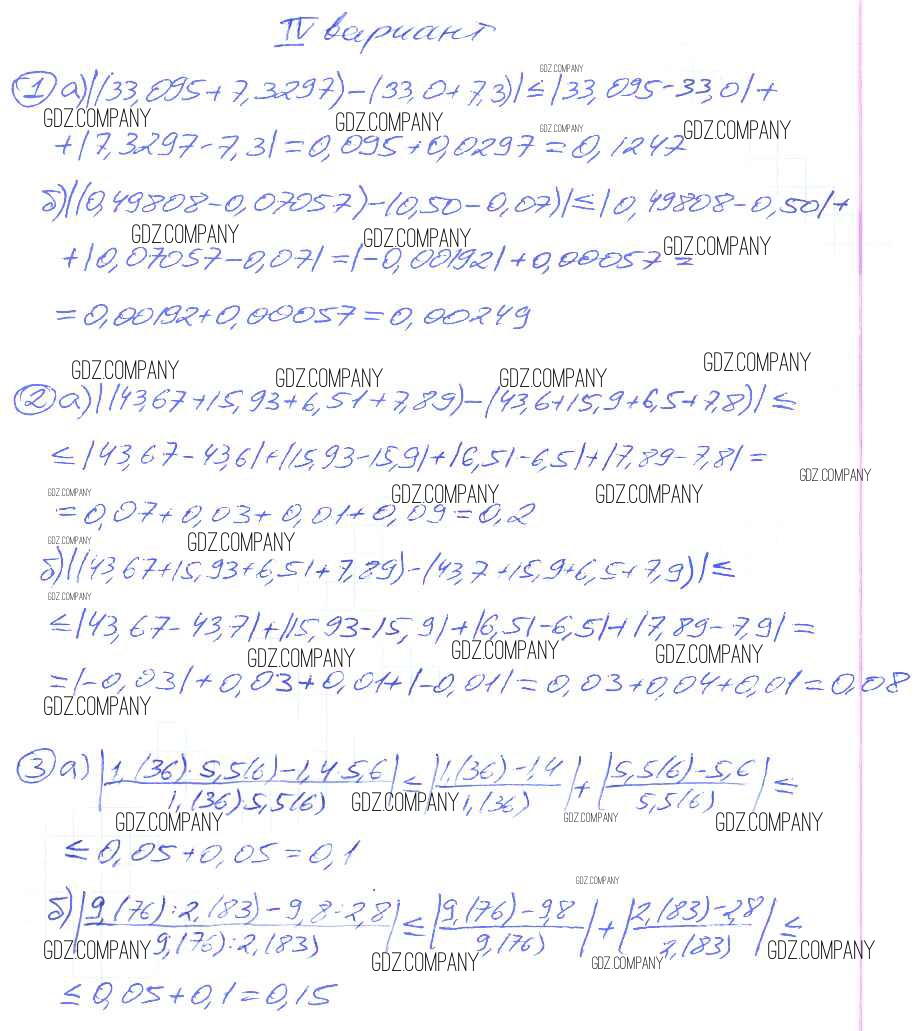 IV вариант
GDZ.COMPANY
① а) |(33,095 + 7,3297) – (33,0 + 7,3)| ≤ |33,095 – 33,0| +
GDZ.COMPANY GDZ.COMPANY GDZ.COMPANY GDZ.COMPANY
+ |7,3297 – 7,3| = 0,095 + 0,0297 = 0,1247
б) |(0,49808 – 0,07057) – (0,50 – 0,07)| ≤ |0,49808 – 0,50| +
GDZ.COMPANY GDZ.COMPANY GDZ.COMPANY
+ |0,07057 – 0,07| = |–0,00192| + 0,00057 =
= 0,00192 + 0,00057 = 0,00249
GDZ.COMPANY GDZ.COMPANY GDZ.COMPANY GDZ.COMPANY
② а) |(43,67 + 15,93 + 6,51 + 7,89) – (43,6 + 15,9 + 6,5 + 7,8)| ≤
≤ |43,67 – 43,6| + |15,93 – 15,9| + |6,51 – 6,5| + |7,89 – 7,8| =
GDZ.COMPANY GDZ.COMPANY GDZ.COMPANY GDZ.COMPANY
= 0,07 + 0,03 + 0,01 + 0,09 = 0,2
GDZ.COMPANY GDZ.COMPANY
б) |(43,67 + 15,93 + 6,51 + 7,89) – (43,7 + 15,9 + 6,5 + 7,9)| ≤
GDZ.COMPANY
≤ |43,67 – 43,7| + |15,93 – 15,9| + |6,51 – 6,5| + |7,89 – 7,9| =
GDZ.COMPANY GDZ.COMPANY GDZ.COMPANY
= |–0,03| + 0,03 + 0,01 + |–0,01| = 0,03 + 0,04 + 0,01 = 0,08
GDZ.COMPANY
③ а) |1,(36) · 5,5(6) – 1,4 5,6 / 1,(36) 5,5(6)| ≤ |1,(36) – 1,4 / 1,(36)| + |5,5(6) – 5,6 / 5,5(6)| ≤
GDZ.COMPANY GDZ.COMPANY GDZ.COMPANY GDZ.COMPANY
≤ 0,05 + 0,05 = 0,1
GDZ.COMPANY
б) |9,(76) : 2,(83) – 9,8 : 2,8 / 9,(76) : 2,(83)| ≤ |9,(76) – 9,8 / 9,(76)| + |2,(83) – 2,8 / 2,(83)| ≤
GDZ.COMPANY GDZ.COMPANY GDZ.COMPANY GDZ.COMPANY
≤ 0,05 + 0,1 = 0,15